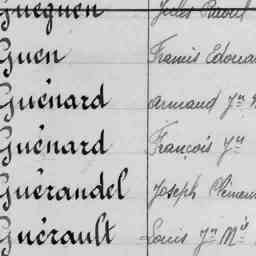 Gueguen Jules Raoul
Guen Francis Edoua
Guénard Armand Jn
Guénard François Jn
Guérandel Joseph Clémen
Guérault Louis Jn Mie